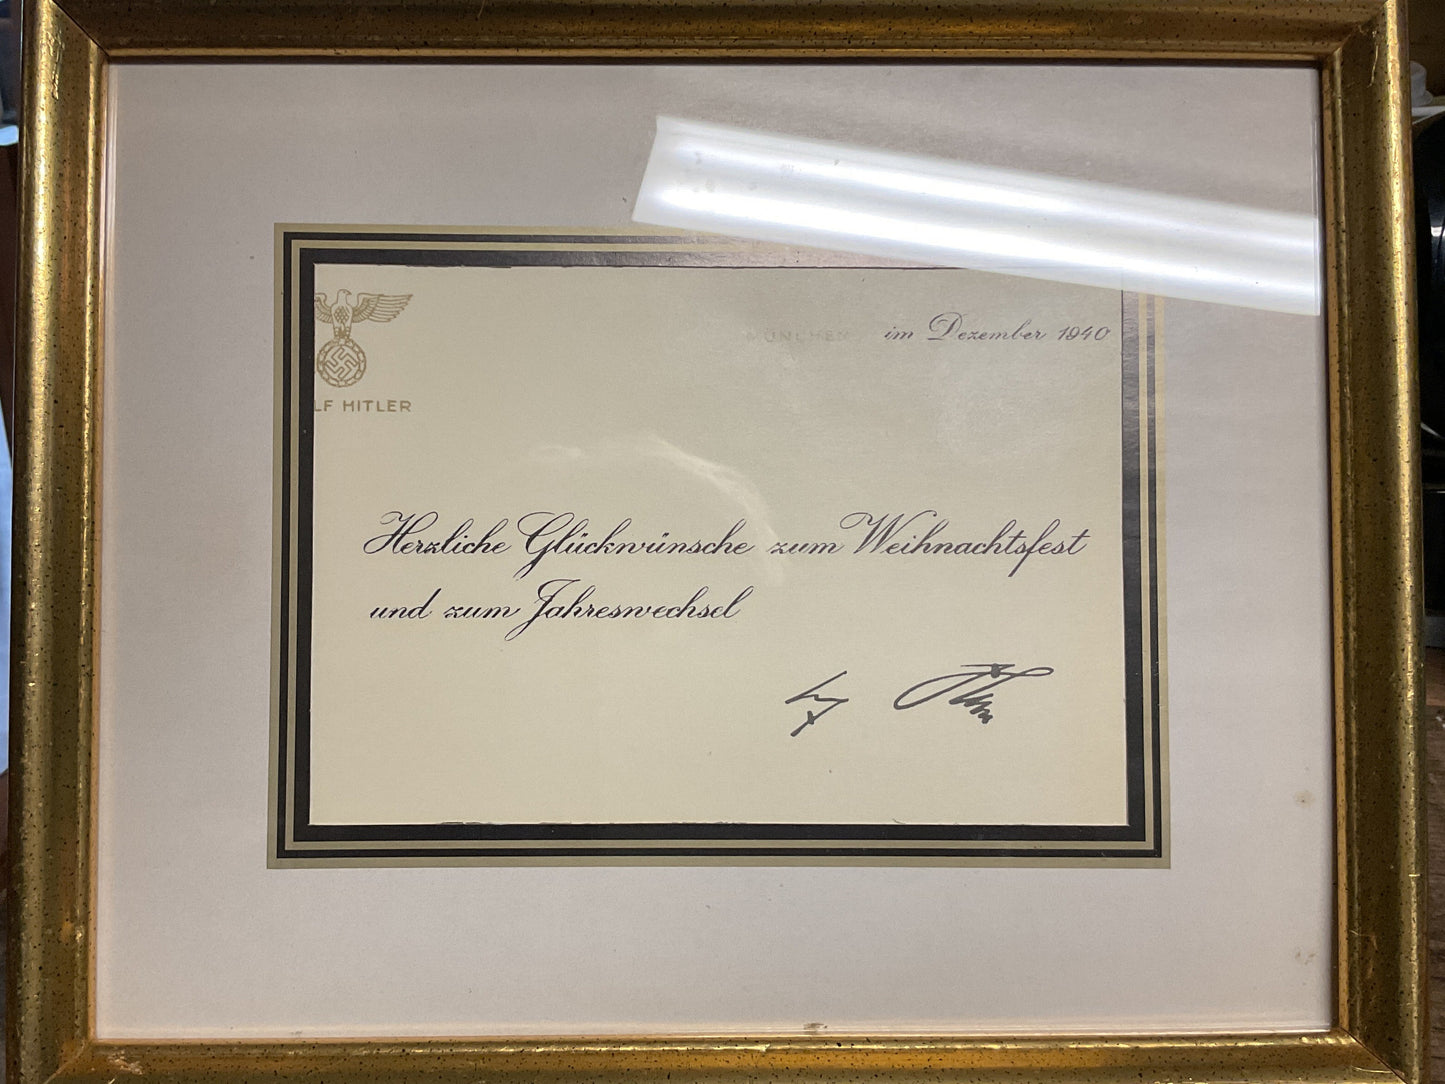 MÜNCHEN im Dezember 1940
LF HITLER
Herzliche Glückwünsche zum Weihnachtsfest
und zum Jahreswechsel